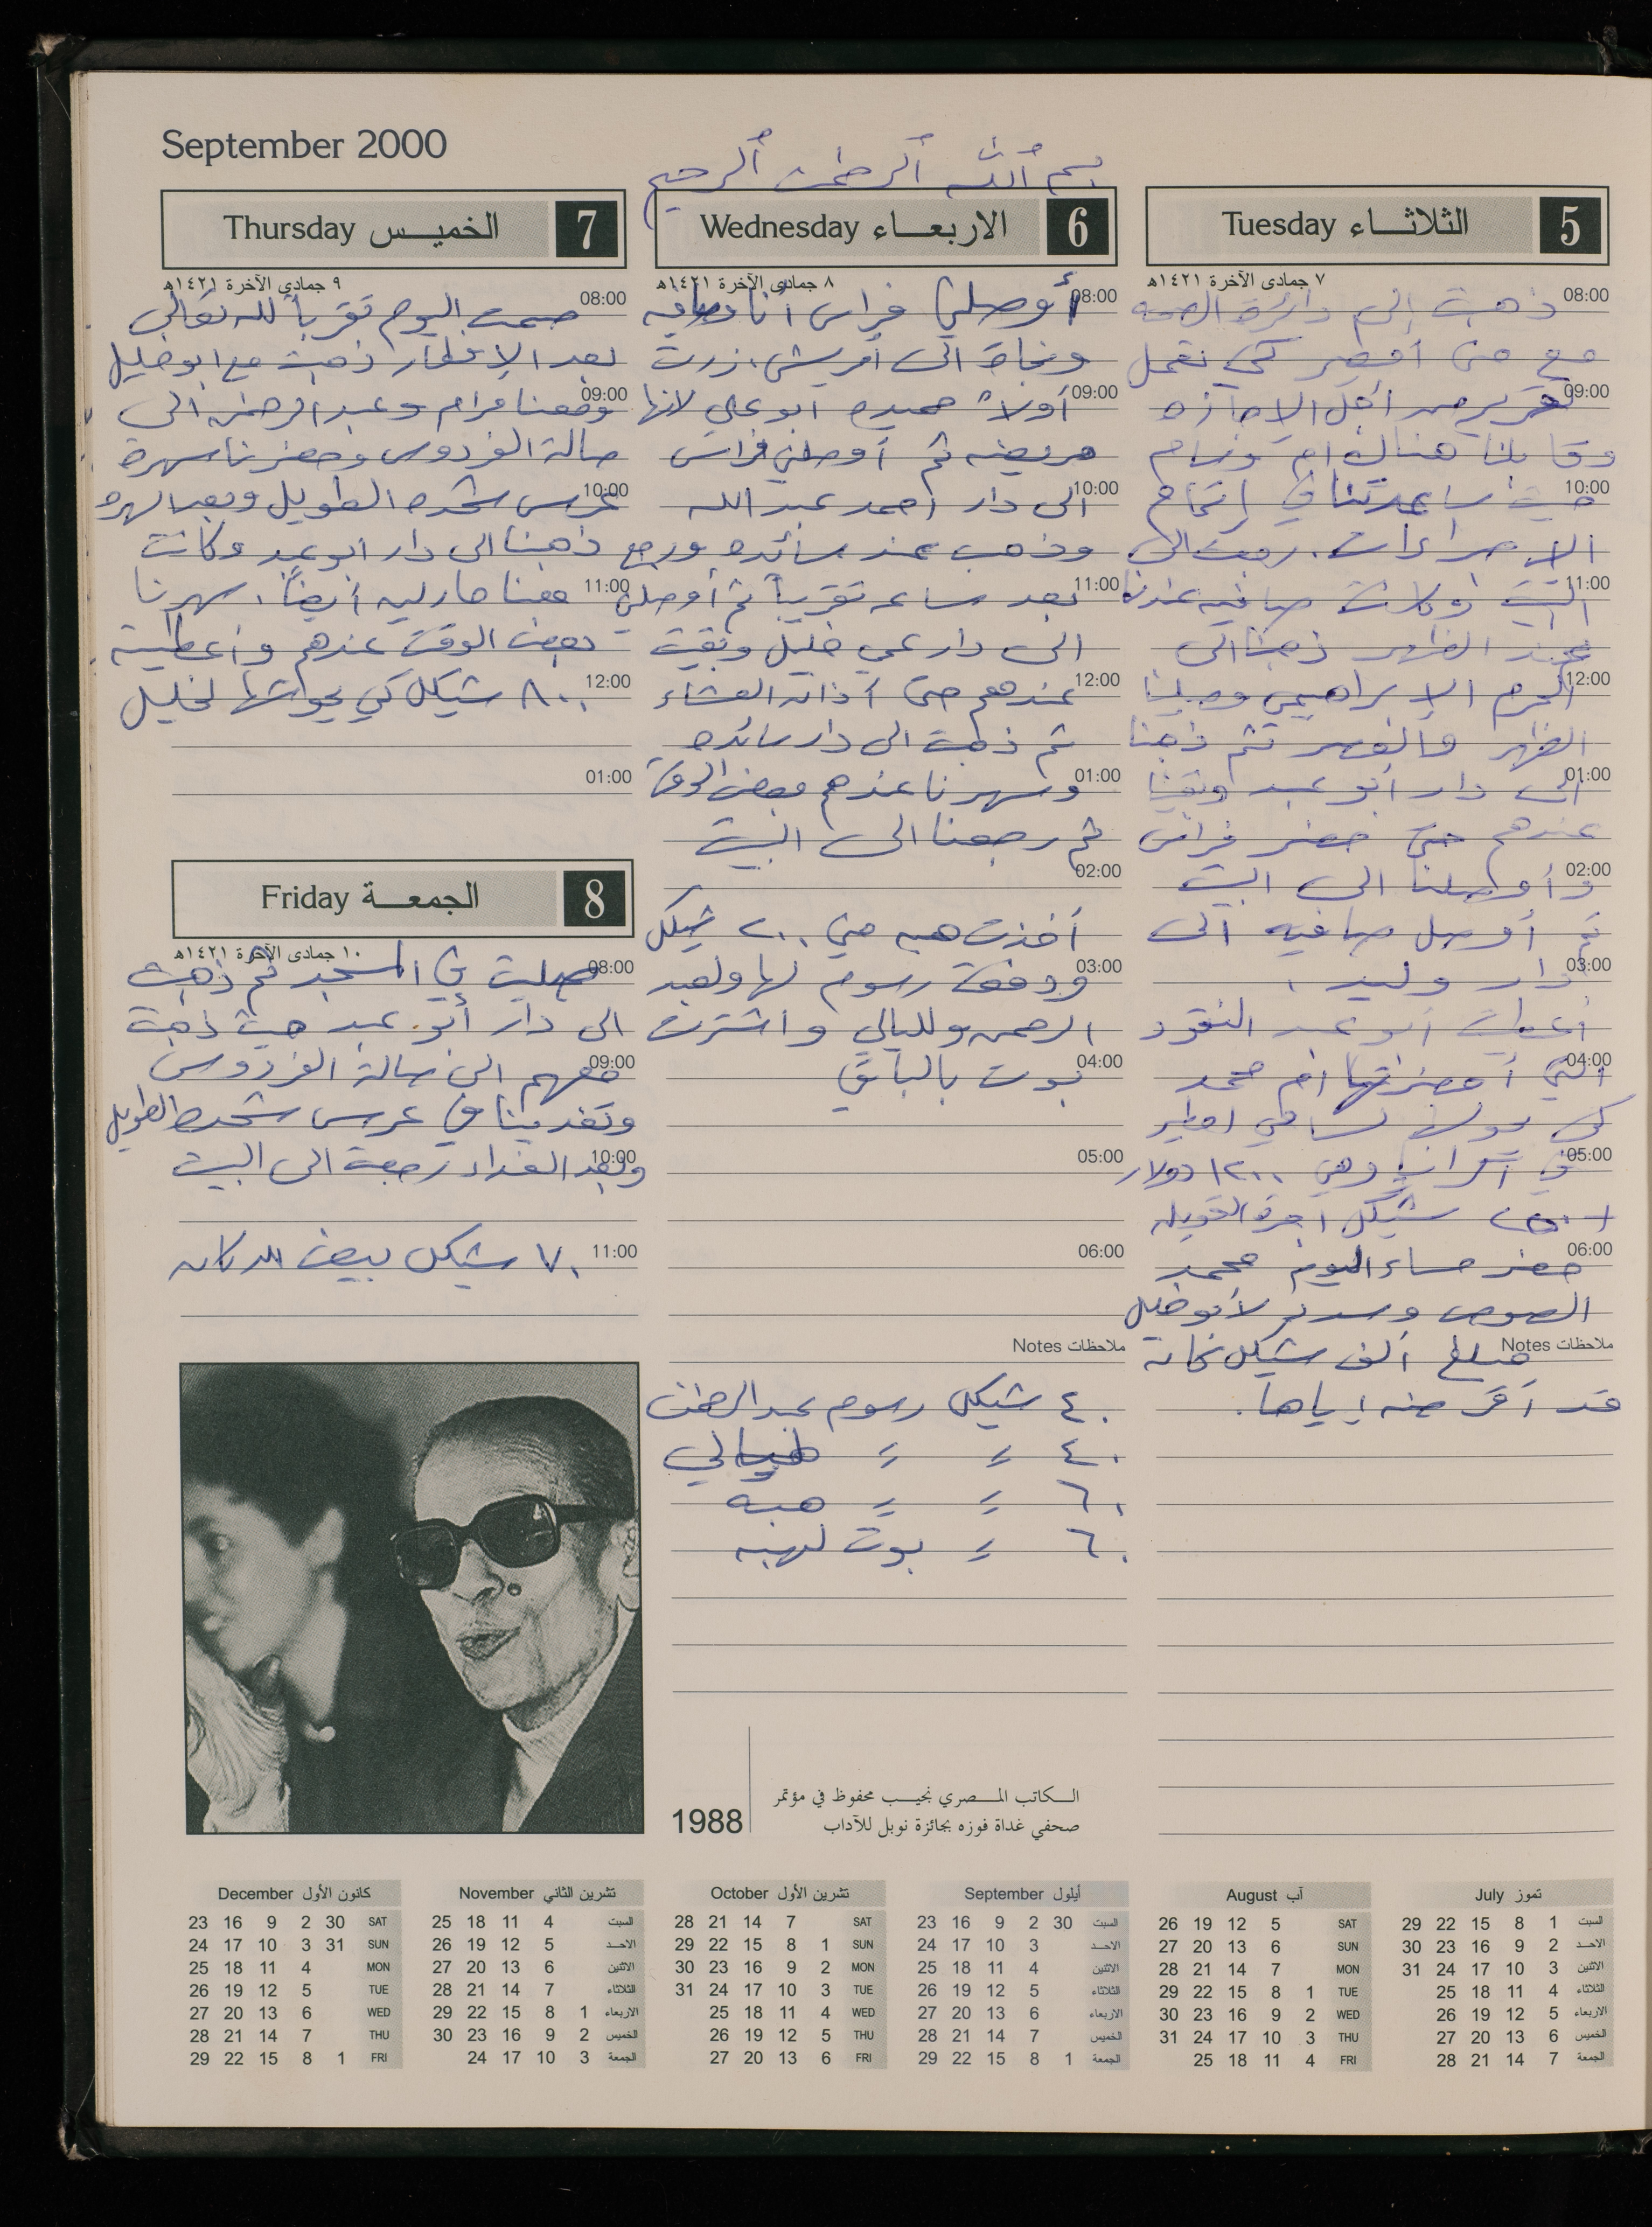 September 2000
بسم الله الرحمن الرحيم
5 الثلاثـــاء Tuesday
٧ جمادى الآخرة ١٤٢١هـ
08:00
ذهبت إلى دائرة الصحه
مع منى كي نعمل
09:00
تقرير من أجل الاجازه
وقابلنا هناك ام وسام
10:00
حيث ساعدتنا في إتمام
الاجراءات. رجعت الى
11:00
البيت وكانت صافيه عندنا
عند الظهر ذهبنا الى
12:00
الحرم الإبراهيمي وصلينا
الظهر والعصر ثم ذهبنا
01:00
الى دار أبو عبد وبقينا
عندهم حتى حضر فراس
02:00
وأوصلنا الى البيت
ثم أوصل صافيه الى
03:00
دار وليد.
أعطيت أبو عبد النقود
04:00
التي أحضرتها ام محمد
كي
05:00
في وهي ١٢٠٠ دولار
شيكل اجرة التحويله
06:00
حضر مساء اليوم محمد
الصوص وسدد لأبو خليل
ملاحظات Notes
مبلغ ألف شيكل كانة
قد منه اياها.
6 الاربعـــاء Wednesday
٨ جمادى الآخرة ١٤٢١هـ
08:00
أوصلني فراس أنا وصافيه
ونجاة الى أمريش، زرت
09:00
أولاً حميده ابو علي لانها
مريضه ثم أوصلني فراس
10:00
الى دار احمد عبد الله
وذهب عند سائده ورجع
11:00
بعد ساعه تقريباً ثم أوصلني
الى دار عمي خليل وبقيت
12:00
عندهم حتى أذان العشاء
ثم ذهبت الى دار سائده
01:00
وسهرنا عندهم بعض الوقت
ثم رجعنا الى البيت
02:00
أخذت هبه مني ٢٠٠ شيكل
03:00
ودفعت رسوم لها ولعبد
الرحمن ولليالي واشترت
04:00
بوت بالباقي
05:00
06:00
ملاحظات Notes
٤٠ شيكل رسوم عبد الرحمن
٤٠ = = ليالي
٦٠ = = هبه
٦٠ = بوت لهبه
7 الخميـــس Thursday
٩ جمادى الآخرة ١٤٢١هـ
08:00
صمت اليوم تقرباً لله تعالى
بعد الإفطار ذهبت مع ابو خليل
09:00
ومعنا مرام وعبد الرحمن الى
صالة الفردوس وحضرنا سهرة
10:00
عرس شحده الطويل وبعد السهره
ذهبنا الى دار ابو عبد وكانت
11:00
معنا مارليه أيضاً. سهرنا
بعض الوقت عندهم وأعطيته
12:00
٨٠٠ شيكل كي يحولها لخليل
01:00
8 الجمعـــة Friday
١٠ جمادى الآخرة ١٤٢١هـ
08:00
صليت في المسجد ثم ذهبت
الى دار أبو عبد حيث ذهبت
09:00
معهم الى صالة الفردوس
وتغدينا في عرس شحده الطويل
10:00
وبعد الغداء رجعت الى البيت
11:00
٧٠ شيكل بيض للدكان
1988
الـــكاتب المـــصري نجيـــب محفوظ في مؤتمر
صحفي غداة فوزه بجائزة نوبل للآداب
تموز July
السبت 1 8 15 22 29
الاحـد 2 9 16 23 30
الاثنين 3 10 17 24 31
الثلاثاء 4 11 18 25
الاربعاء 5 12 19 26
الخميس 6 13 20 27
الجمعة 7 14 21 28
آب August
SAT 5 12 19 26
SUN 6 13 20 27
MON 7 14 21 28
TUE 1 8 15 22 29
WED 2 9 16 23 30
THU 3 10 17 24 31
FRI 4 11 18 25
أيلول September
السبت 30 2 9 16 23
الاحـد 3 10 17 24
الاثنين 4 11 18 25
الثلاثاء 5 12 19 26
الاربعاء 6 13 20 27
الخميس 7 14 21 28
الجمعة 1 8 15 22 29
تشرين الأول October
SAT 7 14 21 28
SUN 1 8 15 22 29
MON 2 9 16 23 30
TUE 3 10 17 24 31
WED 4 11 18 25
THU 5 12 19 26
FRI 6 13 20 27
تشرين الثاني November
السبت 4 11 18 25
الاحـد 5 12 19 26
الاثنين 6 13 20 27
الثلاثاء 7 14 21 28
الاربعاء 1 8 15 22 29
الخميس 2 9 16 23 30
الجمعة 3 10 17 24
كانون الأول December
SAT 30 2 9 16 23
SUN 31 3 10 17 24
MON 4 11 18 25
TUE 5 12 19 26
WED 6 13 20 27
THU 7 14 21 28
FRI 1 8 15 22 29